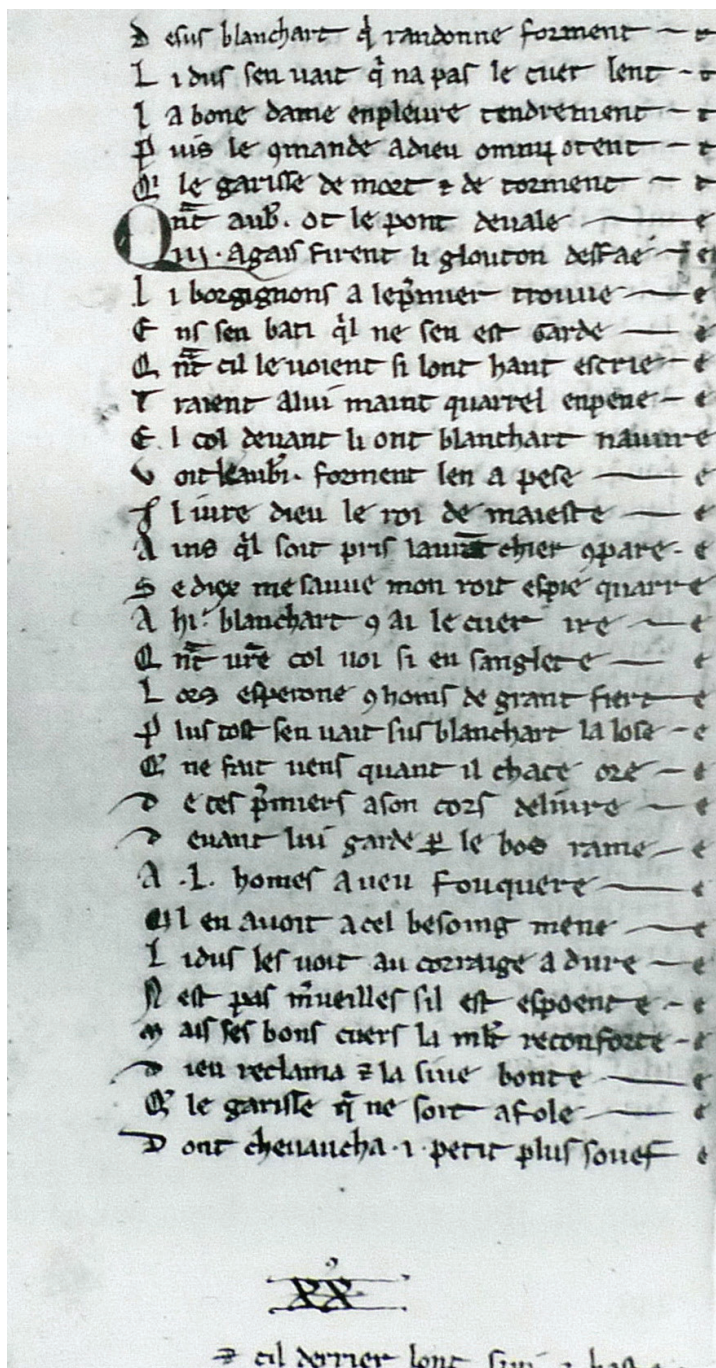 D esus blanchart q̃ randonne forment — t
L i dus sen uait q̃ na pas le cuer lent - t
L a bone dame enpleure tendrement — t
P uis le ꝯmande adieu omnipotent — t
Q̃ le garisse de mort ⁊ de torment — t
Qñt aub̃. ot le pont deuale — e
iiij . agais firent li glouton desfae — e
L i borgignons a lep̃mier trouue — e
E ns sen bati q̃l ne sen est garde — e
Q ñt cil le uoient si lont haut escrie — e
T raient alui maint quarrel enpene — e
E l col deuant li ont blanchart naure
V oit le aub̃i. forment len a pese — e
J l iure dieu le roi de maieste — e
A ins q̃l soit pris laurat chier ꝯpare - e
S e diex me sauue mon roit espie quarre
A hi . blanchart ꝯ ai le cuer ire — e
Q ñt ur̃e col uoi si en sanglete — e
L ors esperone ꝯ homs de grant fierte
P lus tost sen uait sus blanchart la lose — e
Q̃ ne fait uens quant il chace ore — e
D e ces p̃miers a son cors deliure — e
D euant lui garde ꝑ le bos rame — e
A .L. homes a ueu fouquere — e
Q̃l en auoit a cel besoing mene — e
L i dus les uoit au corraige a dure — e
N est pas m̃ueilles sil est espoente - e
M ais ses bons cuers la ml̃t reconforte - e
D ieu reclama ⁊ la siue bonte — e
Q̃ le garisse q̃ ne soit afole — e
D ont cheuaucha . i . petit plus souef e
XXꝰ
⁊ cil derrier lont